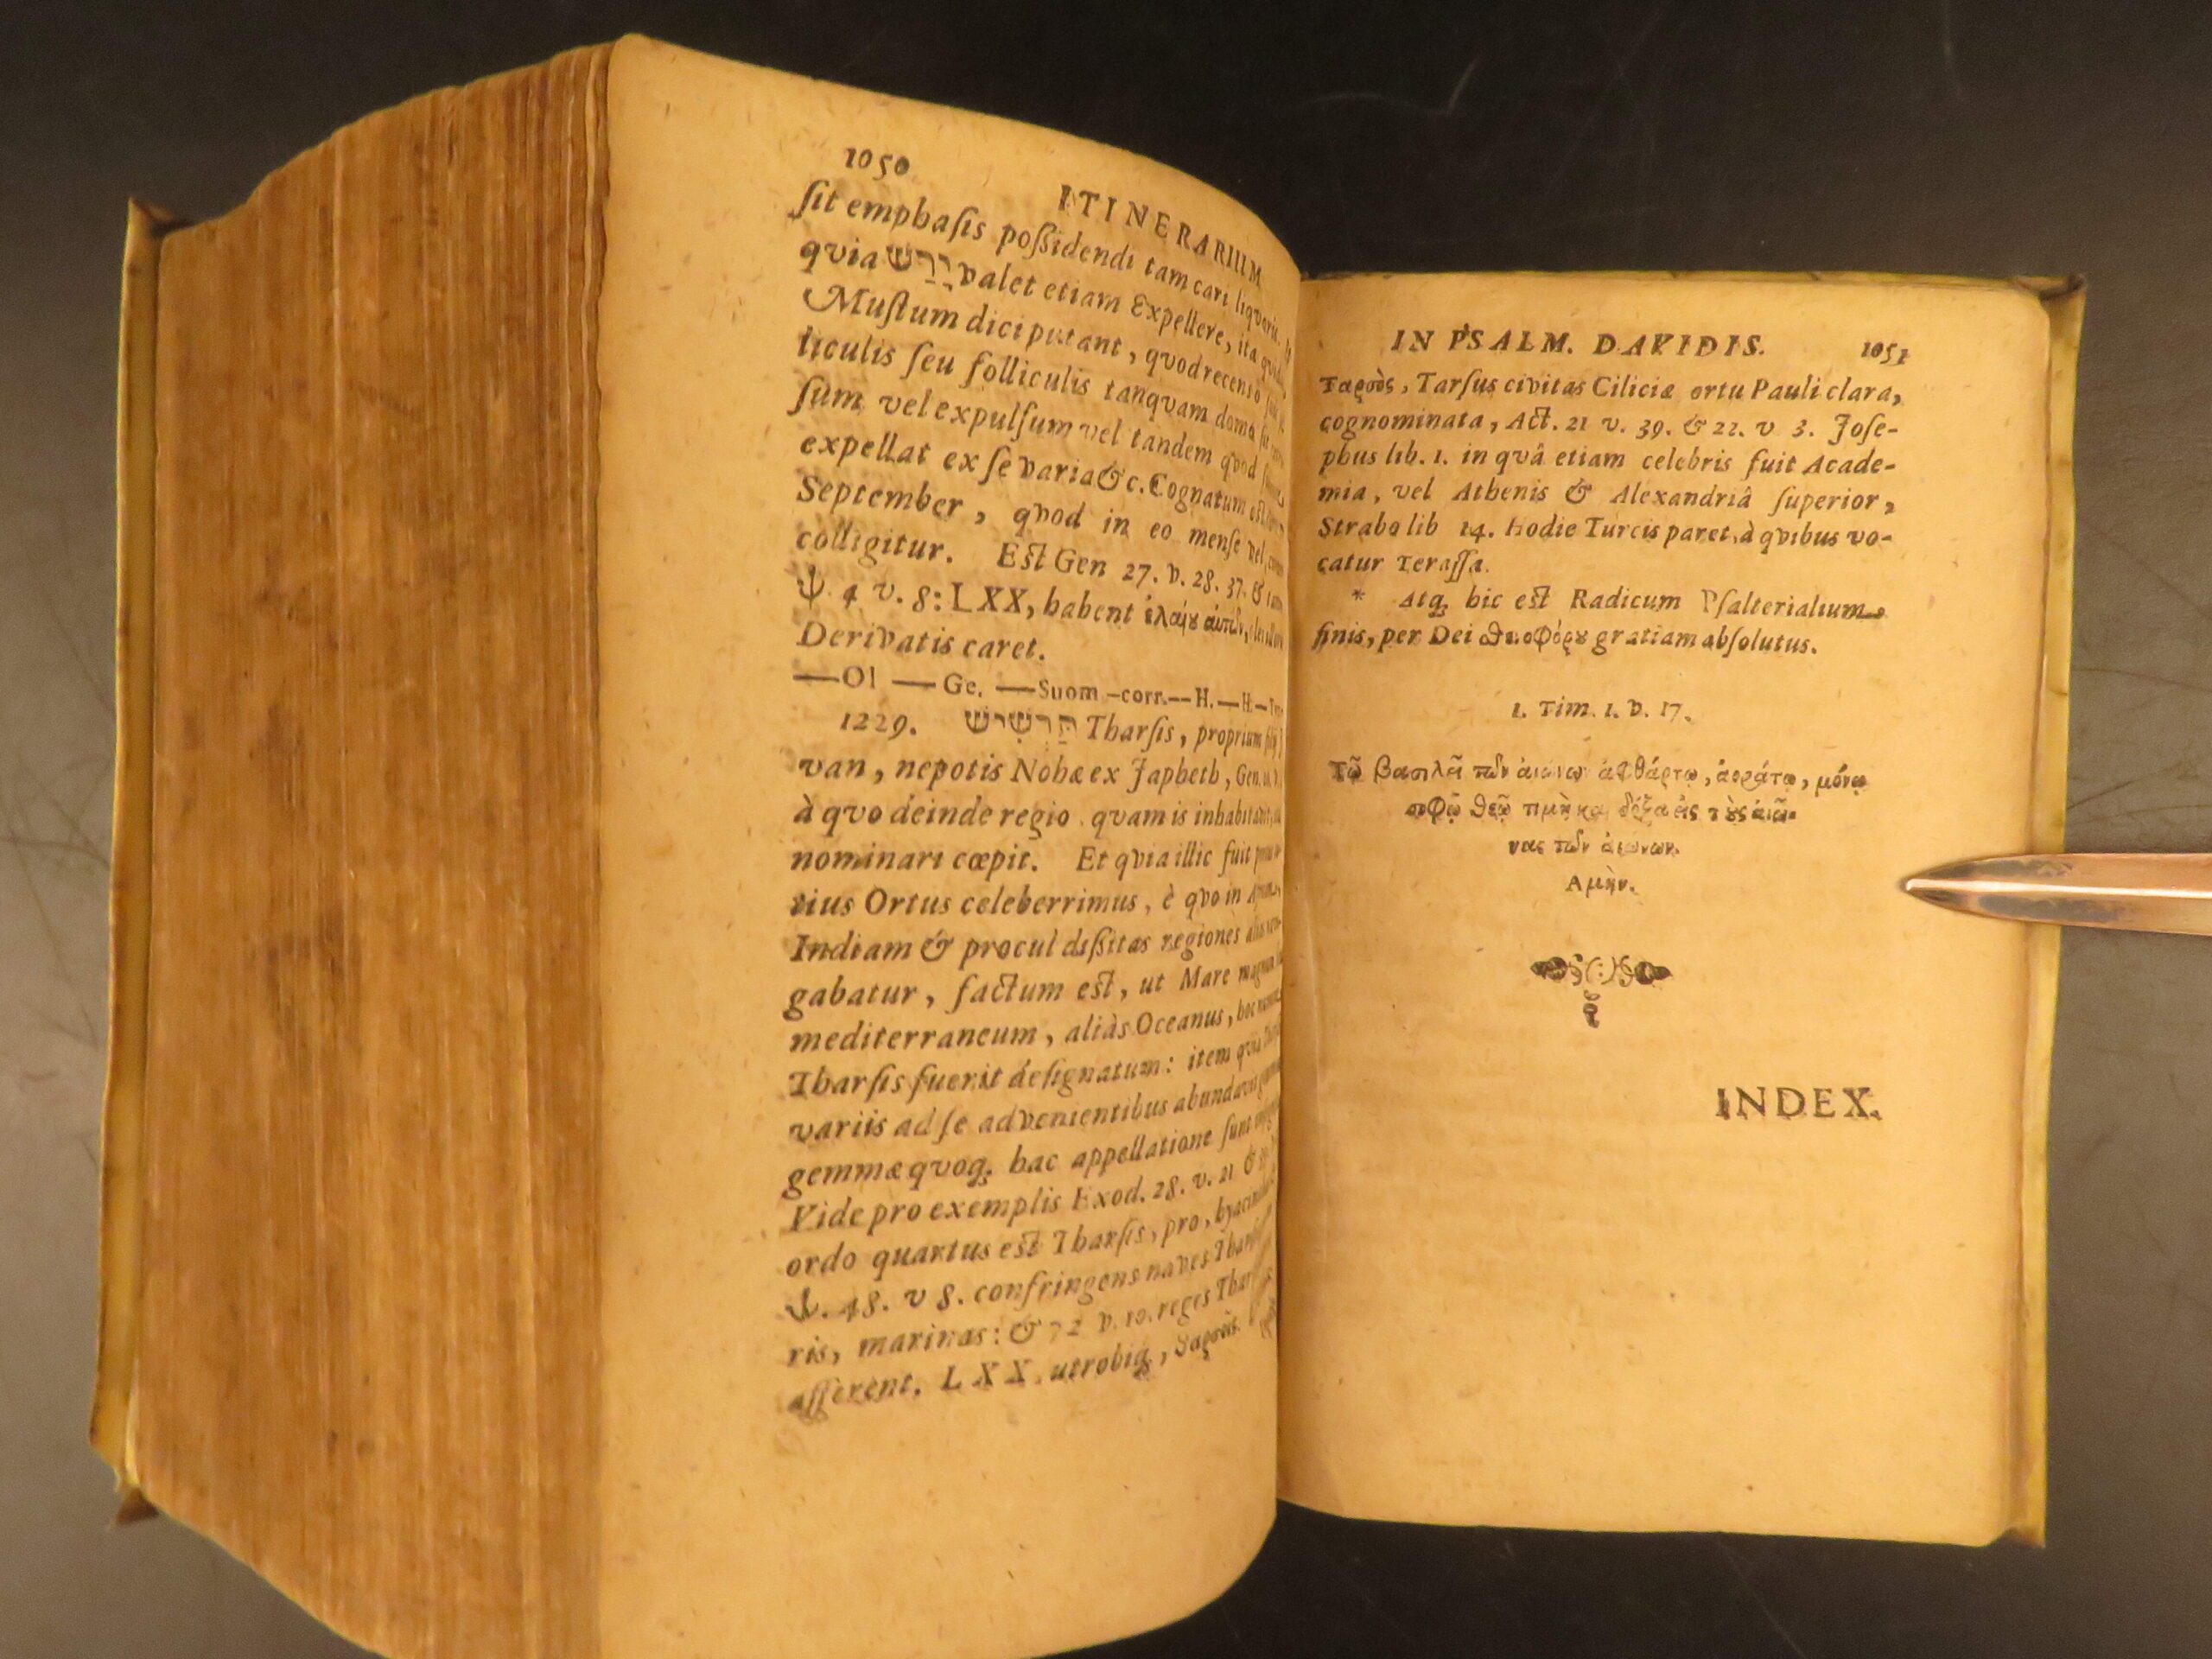 1050
ITINERARIUM
ſit emphaſis poßidendi tam cari
qvia valet etiam Expellere, ita
Muſtum dici putant, qvod recenso
ticulis ſeu folliculis tanqvam domo
ſum vel expulſum vel tandem qvod
expellat ex ſe varia &c. Cognatum est
September, qvod in eo menſe vel
colligitur. Est Gen 27. v. 28. 37. &
Ψ. 4 v. 8: LXX, habent ἐλαίȣ αὐτῶν,
Derivatis caret.
—Ol —Ge. —Suom —corr.—H.—H—
1229. תַּרְשִׁישׁ Tharſis, proprium
van, nepotis Nohæ ex Japheth, Gen.
à qvo deinde regio qvam is inhabitavit,
nominari cœpit. Et qvia illic fuit
tius Ortus celeberrimus, è qvo in
Indiam & procul dißitas regiones
gabatur, factum est, ut Mare magnum
mediterraneum, aliàs Oceanus, hoc
Tharſis fuerit deſignatum: item qvia
variis ad ſe advenientibus abundavit
gemmæ qvoq; hac appellatione ſunt
Vide pro exemplis Exod. 28. v. 21 &
ordo quartus est Tharſis, pro,
Ψ. 48. v 8. confringens naves
ris, marinas: & 72 v. 10. reges
aſſerent. LXX. utrobiq;,
IN PSALM. DAVIDIS. 1051
Ταρσὸς, Tarſus civitas Ciliciæ ortu Pauli clara,
cognominata, Act. 21 v. 39. & 22. v 3. Joſe-
phus lib. 1. in qvâ etiam celebris fuit Acade-
mia, vel Athenis & Alexandriâ ſuperior,
Strabo lib 14. Hodie Turcis paret, à qvibus vo-
catur Teraſſa.
* Atq; hic est Radicum Pſalterialium
finis, per Dei gratiam abſolutus.
1. Tim. 1. v. 17.
Τῷ βασιλεῖ τῶν αἰώνων ἀφθάρτῳ, ἀοράτῳ, μόνῳ
σοφῷ θεῷ τιμὴ καὶ δόξα εἰς τȣ̀ς αἰῶ-
νας τῶν αἰώνων.
Αμὴν.
INDEX.